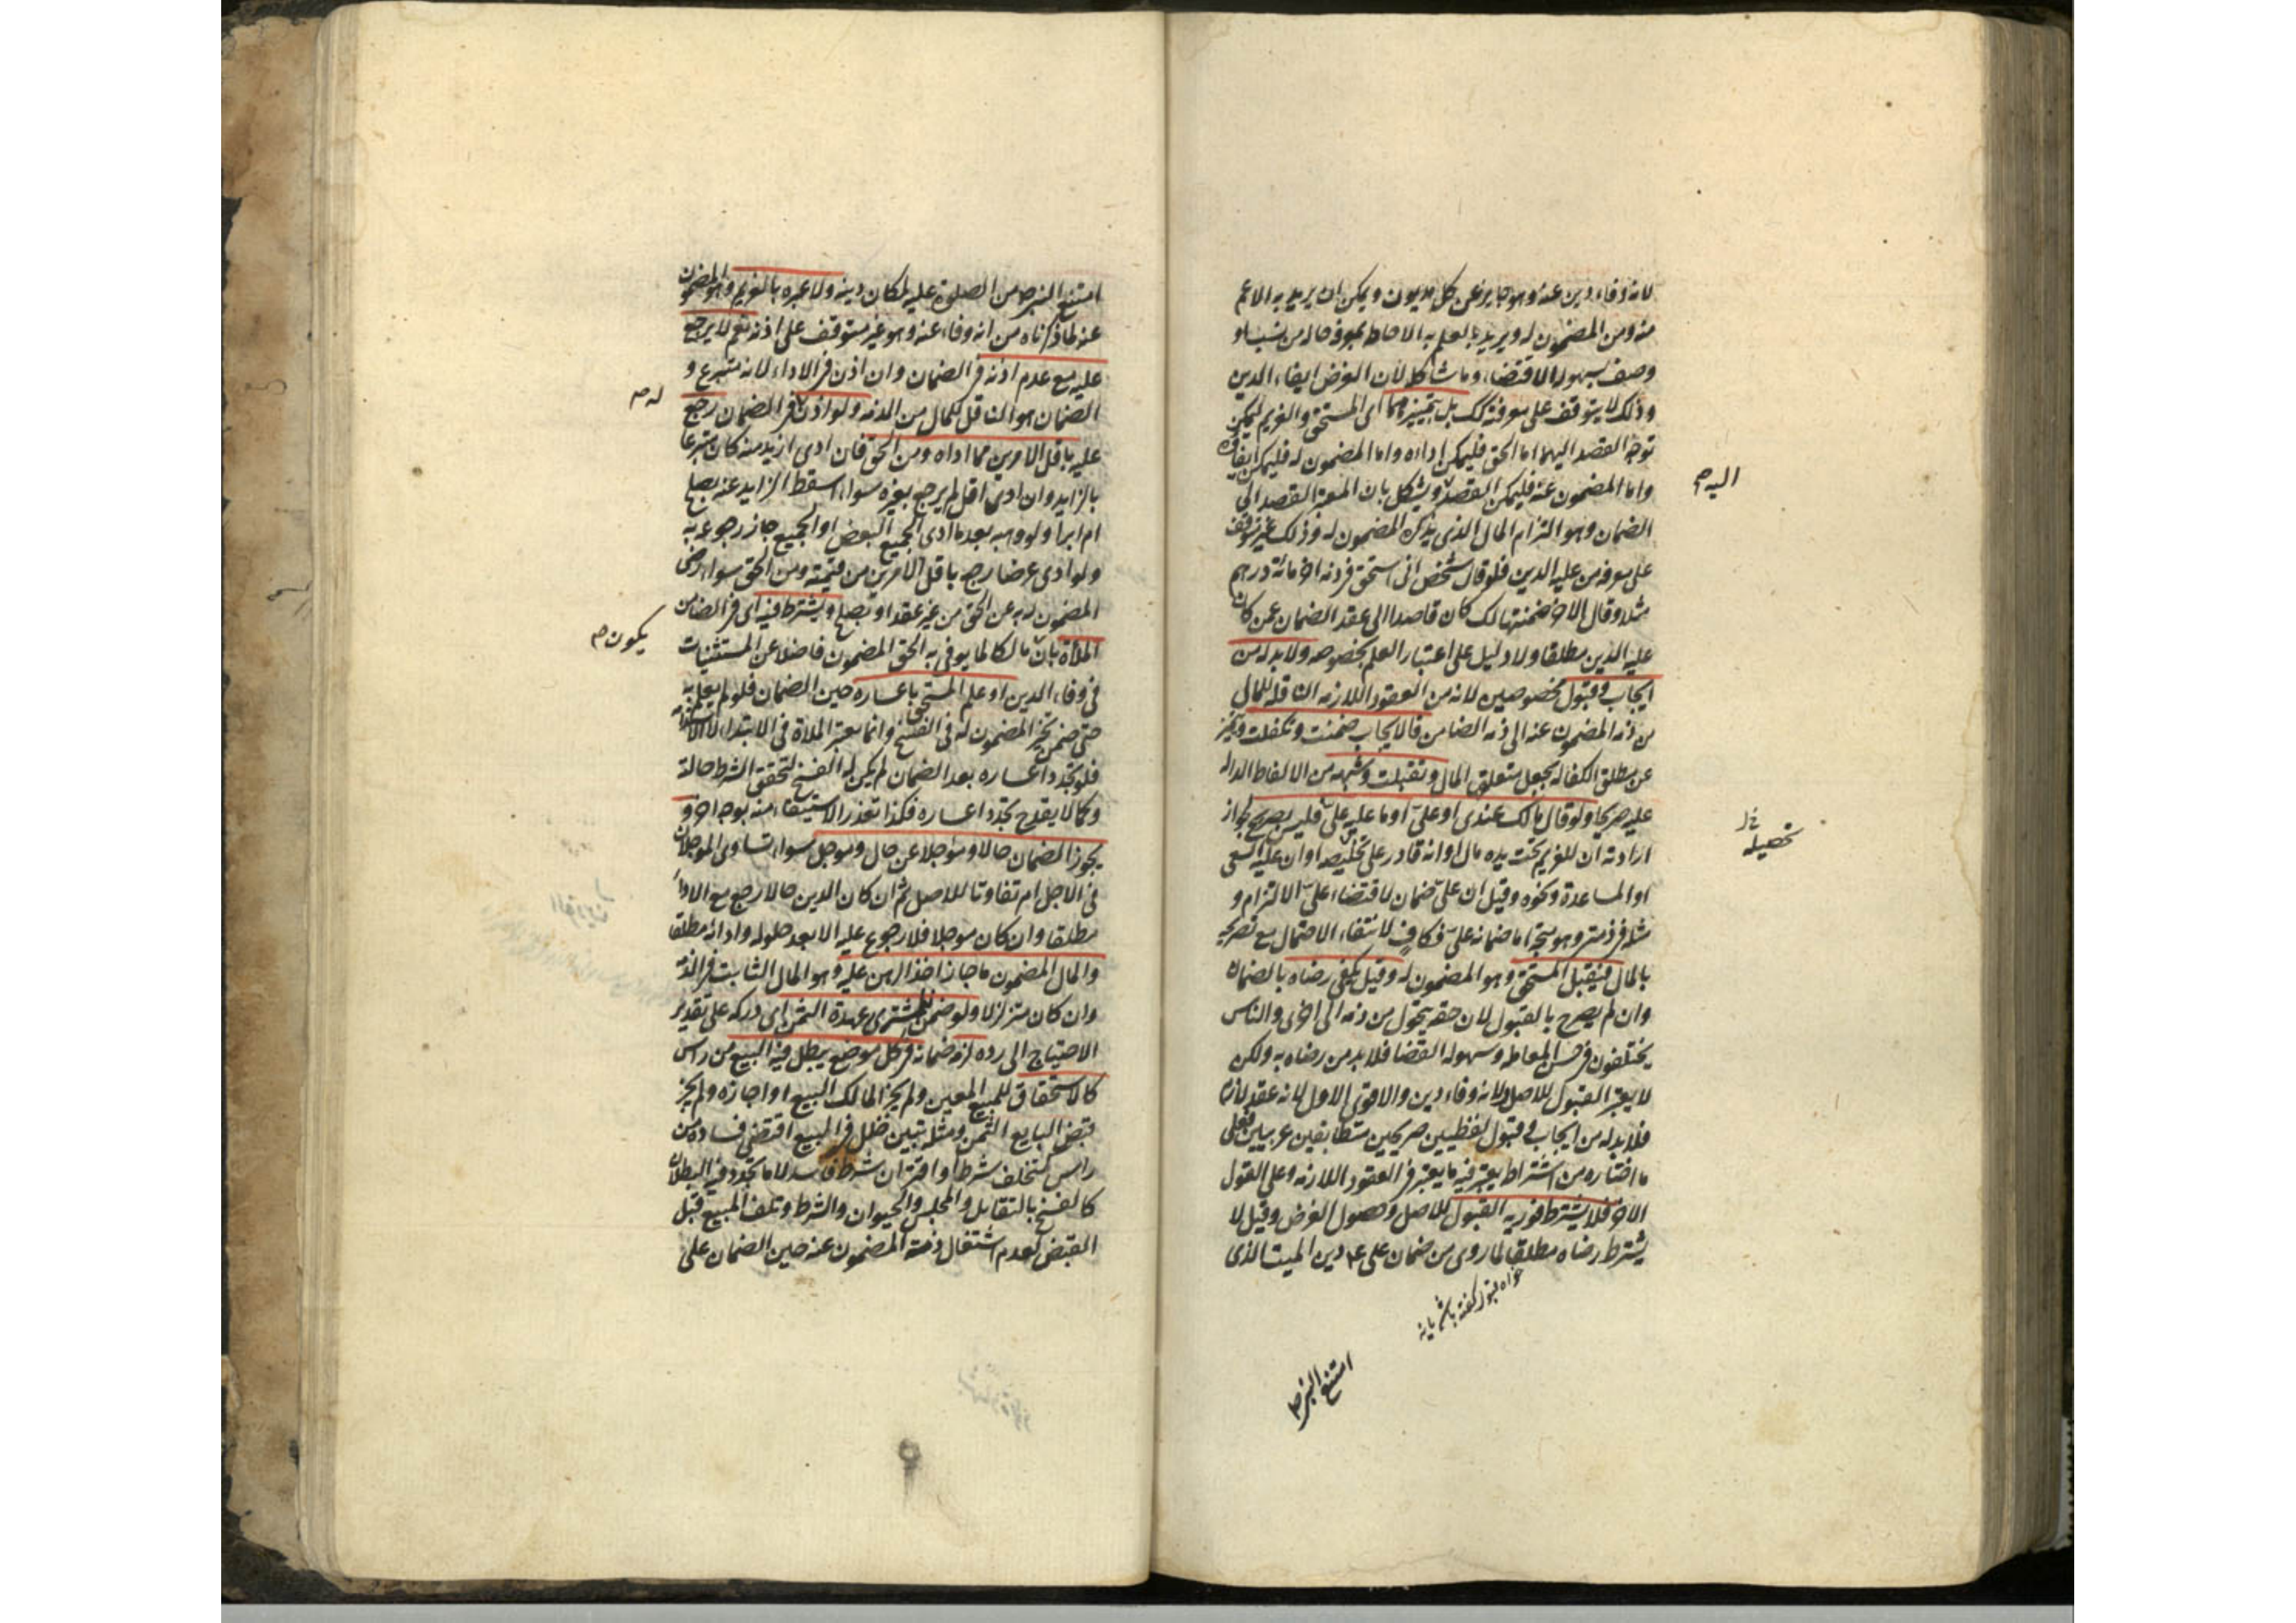 لانه وفاء دين عنه وهو جايز عن كل مديون ويمكن ان يريد به الاعم
منه ومن المضمون له ويريد بالعلم به الاحاطه بمعرفة حاله من نسب او
وصف لسهولة الاقتضاء وما شاكله لان الغرض ايفاء الدين
وذلك لا يتوقف على معرفته كك بل تميزهما اى المستحق والغريم ليمكن
توجه القصد اليهما اما الحق فليمكن اداءه واما المضمون له فليمكن ايفاؤه
واما المضمون عنه فليمكن القصد ويشكل بان المعتبر القصد الى
الضمان وهو التزام المال الذى يذكره المضمون له وذلك غير متوقف
على معرفة من عليه الدين فلو قال شخص انى استحق فى ذمة اخر مائة درهم
مثلا وقال الاخر ضمنتها لك كان قاصدا الى عقد الضمان عمن كان
عليه الدين مطلقا ولا دليل على اعتبار العلم بخصوصه ولا بد له من
ايجاب وقبول مخصوصين لانه من العقود اللازمه الناقله للمال
من ذمه المضمون عنه الى ذمه الضامن فالايجاب ضمنت وتكفلت ويتميز
عن مطلق الكفاله بجعل متعلق المال وتقبلت وشبهه من الالفاظ الداله
عليه صريحا ولو قال مالك عندى او علىّ او ما عليه علىّ فليس بصريح لجواز
ارادته ان للغريم تحت يده مال او انه قادر على تخليصه او ان عليه السعى
او المساعدة ونحوه وقيل ان علىّ ضمان لاقتضاء علىّ الالتزام و
مثله فى ذمتى وهو متجه اما ضمانه علىّ فكافٍ لانتفاء الاحتمال مع تصريحه
بالمال فيقبل المستحق وهو المضمون له وقيل يكفى رضاه بالضمان
وان لم يصرح بالقبول لان حقه يتحول من ذمه الى اخرى والناس
يختلفون فى حسن المعامله وسهوله القضا فلا بد من رضاه به ولكن
لا يعتبر القبول للاصل ولانه وفاء دين والاقوى الاول لانه عقد لازم
فلا بد له من ايجاب وقبول لفظيين صريحين متطابقين عربيين فعلى
ما اختاره من اشتراط يعتبر فيه ما يعتبر فى العقود اللازمه وعلى القول
الاخر فلا يشترط فوريه القبول للاصل وحصول الغرض وقيل لا
يشترط رضاه مطلقا لما روى من ضمان على ع دين الميت الذى
امتنع النبى ص
اليه م
خ ل
تحصيله
امتنع النبى ص من الصلوة عليه لمكان دينه ولا عبره بالغريم وهو المضمون
عنه لما ذكرناه من انه وفاء عنه وهو غير متوقف على اذنه نعم لا يرجع
عليه مع عدم اذنه فى الضمان وان اذن فى الاداء لانه متبرع و
الضمان هو الناقل للمال من الذمه ولو اذن فى الضمان رجع
عليه باقل الامرين مما اداه ومن الحق فان ادى ازيد منه كان متبرعا
بالزايد وان ادى اقل لم يرجع بغيره سواء اسقط الزايد عنه بصلح
ام ابرا ولو وهبه بعد ما ادى الجميع البعض او الجميع جاز رجوعه به
ولو ادى عرضا رجع باقل الامرين من قيمته ومن الحق سواء رضى
المضمون له به عن الحق من غير عقد او بصلح ويشترط فيه اى فى الضامن
الملأة بان مالكا لما يوفى به الحق المضمون فاضلا عن المستثنيات
فى وفاء الدين او علم المستحق باعساره حين الضمان فلو لم يعلم به
حتى ضمن تخير المضمون له فى الفسخ وانما يعتبر الملاة فى الابتداء لا الاستدامة
فلو تجدد اعساره بعد الضمان لم يكن له الفسخ لتحقق الشرط حالة
وكما لا يقدح تجدد اعساره فكذا تعذر الاستيفاء منه بوجه اخر و
يجوز الضمان حالا ومؤجلا عن حال وموجل سواء تساوى الموجلان
فى الاجل ام تفاوتا للاصل ثم ان كان الدين حالا رجع مع الاداء
مطلقا وان كان موجلا فلا رجوع عليه الا بعد حلوله وادائه مطلقا
والمال المضمون ما جاز اخذ الرهن عليه وهو المال الثابت فى الذمة
وان كان متزلزلا ولو ضمن للمشترى عهدة الثمن اى دركه على تقدير
الاحتياج الى رده لزمه ضمانه فى كل موضع يبطل فيه البيع من راس
كالاستحقاق للمبيع المعين ولم يجز المالك البيع او اجازه ولم يجز
قبض البايع الثمن ومثله تبين خلل فى المبيع اقتضى فساده من
راس كتخلف شرط او اقتران شرط فاسد لا ما تجدد فيه البطلان
كالفسخ بالتقايل والمجلس والحيوان والشرط وتلف المبيع قبل
القبض لعدم اشتغال ذمته المضمون عنه حين الضمان على
له م
يكون م